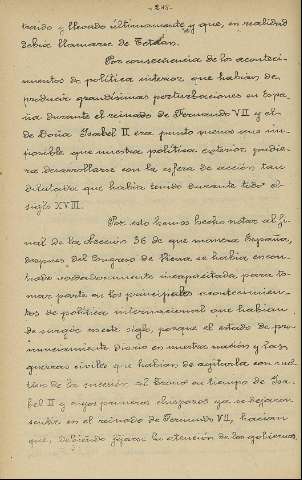 -245-
traido y llevado últimamente y que, en realidad
debia llamarse de Tetuán.
Por consecuencia de los aconteci-
mientos de politica interior que habian de
producir grandisimas perturbaciones en Espa-
ña durante el reinado de Fernando VII y el
de Doña Isabel II era punto menos que im-
posible que nuestra politica exterior pudie-
ra desarrollarse con la esfera de acción tan
dilatada que habia tenido durante todo el
siglo XVIII.
Por esto hemos hecho notar al fi-
nal de la Lección 36 de que manera España,
despues del Congreso de Viena se habia encon-
trado verdaderamente incapacitada para to-
mar parte en los principales acontecimien-
tos de politica internacional que habian
de surgir en este siglo, porque el estado de pro-
nunciamiento diario en nuestra nación y las
guerras civiles que habian de agitarla con mo-
tivo de la sucesión al trono en tiempo de Isa-
bel II y cuyos primeros chispazos ya se dejaron
sentir en el reinado de Fernando VII, hacian
que, debiendo fijarse la atención de los gobiernos